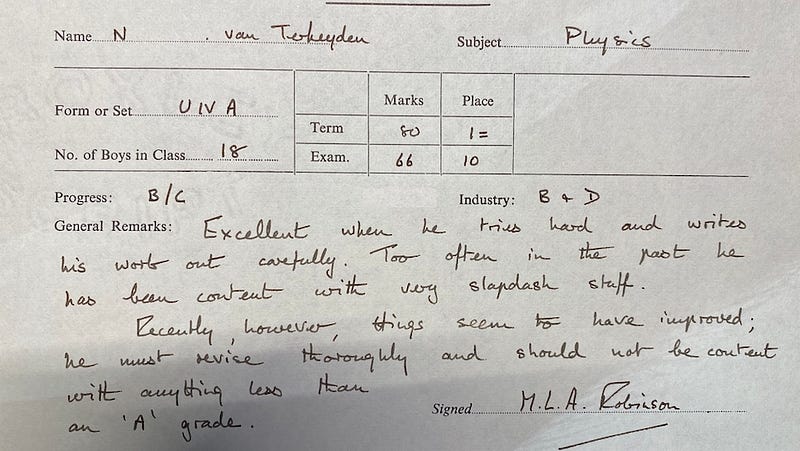 Name N . van Terheyden Subject Physics
Form or Set U IV A
Marks Place
Term 80 1=
No. of Boys in Class 18
Exam. 66 10
Progress: B/C Industry: B + D
General Remarks: Excellent when he tries hard and writes
his work out carefully. Too often in the past he
has been content with very slapdash stuff.
Recently, however, things seem to have improved;
he must revise thoroughly and should not be content
with anything less than
an 'A' grade.
Signed M.L.A. Robinson